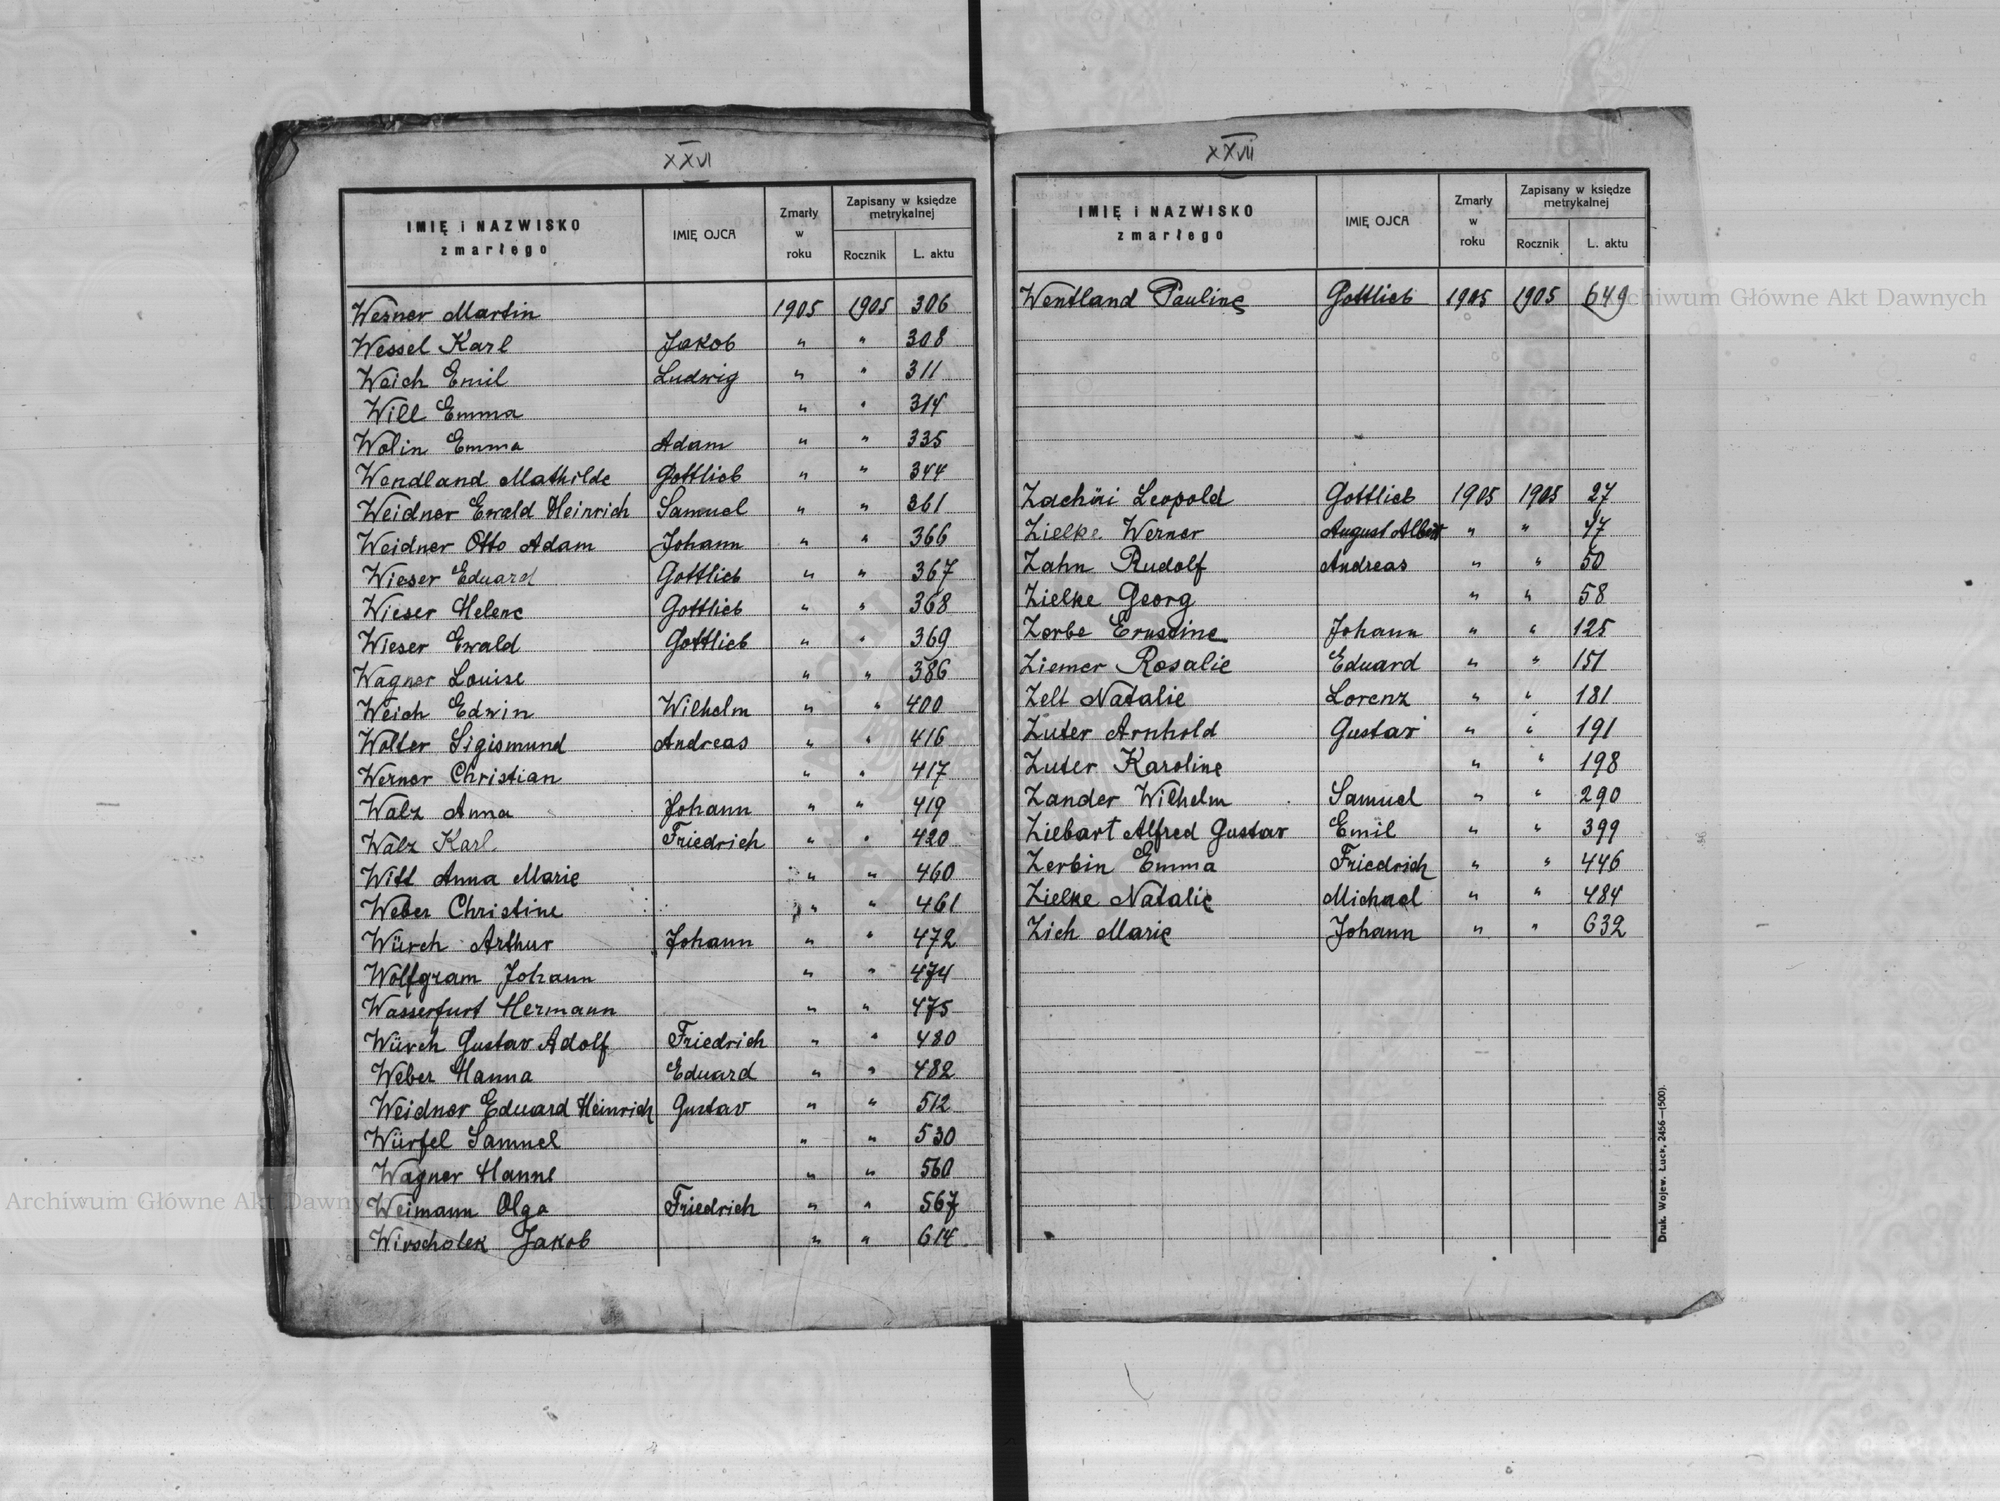 XXVI
IMIĘ i NAZWISKO zmarłego IMIĘ OJCA Zmarły w roku Zapisany w księdze metrykalnej Rocznik L. aktu
Werner Martin 1905 1905 306
Wessel Karl Jakob " " 308
Weich Emil Ludwig " " 311
Will Emma " " 314
Wolin Emma Adam " " 335
Wendland Mathilde Gottlieb " " 344
Weidner Ewald Heinrich Samuel " " 361
Weidner Otto Adam Johann " " 366
Wieser Eduard Gottlieb " " 367
Wieser Helene Gottlieb " " 368
Wieser Ewald Gottlieb " " 369
Wagner Louise " " 386
Weich Edwin Wilhelm " " 400
Wolter Sigismund Andreas " " 416
Werner Christian " " 417
Walz Anna Johann " " 419
Walz Karl Friedrich " " 420
Witt Anna Marie " " 460
Weber Christine " " 461
Würch Arthur Johann " " 472
Wolfgram Johann " " 474
Wasserfurt Hermann " " 475
Würch Gustav Adolf Friedrich " " 480
Weber Hanna Eduard " " 482
Weidner Eduard Heinrich Gustav " " 512
Würfel Samuel " " 530
Wagner Hanne " " 560
Weimann Olga Friedrich " " 567
Wirscholek Jakob " " 614
XXVII
IMIĘ i NAZWISKO zmarłego IMIĘ OJCA Zmarły w roku Zapisany w księdze metrykalnej Rocznik L. aktu
Wentland Pauline Gottlieb 1905 1905 649
Zachäi Leopold Gottlieb 1905 1905 27
Zielke Werner August Albert " " 47
Zahn Rudolf Andreas " " 50
Zielke Georg " " 58
Zerbe Johann " " 125
Ziemer Rosalie Eduard " " 151
Zelt Natalie Lorenz " " 181
Zuter Arnhold Gustav " " 191
Zuter Karoline " " 198
Zander Wilhelm Samuel " " 290
Ziebart Alfred Gustav Emil " " 399
Zerbin Emma Friedrich " " 446
Zielke Natalie Michael " " 484
Zich Marie Johann " " 632
Druk. Wojew. Łuck, 2456—(500).
Archiwum Główne Akt Dawnych
Archiwum Główne Akt Dawnych